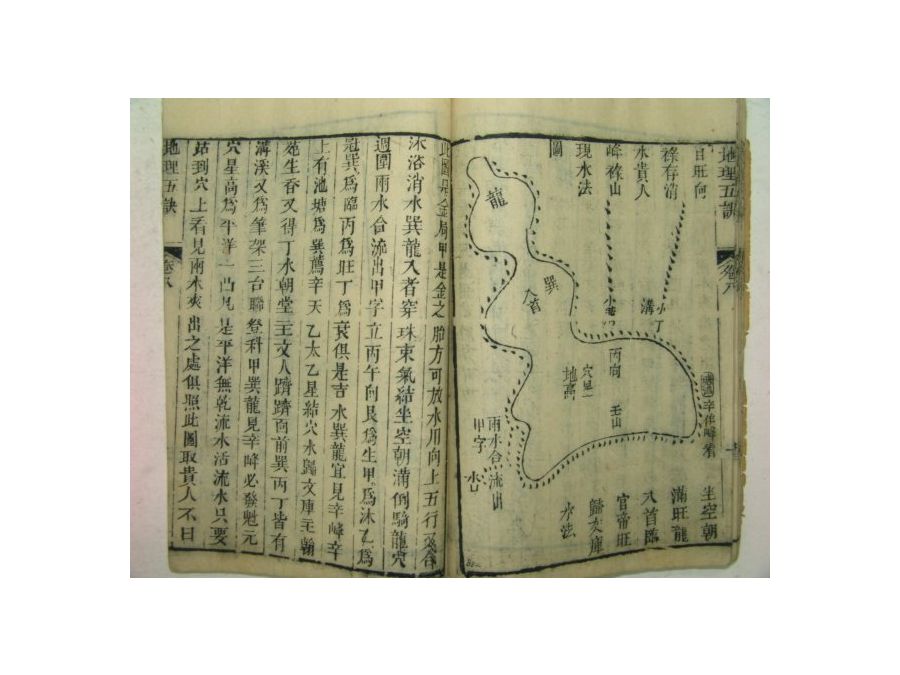 地理五訣
卷八
自旺向
祿存消
水貴人
峰祿山
現水法
圖
龍
巽
入首
小
溝
小
丁
丙向
壬山
穴星
地高
辛
峰
兩水合流出
甲字
水口
坐空朝
滿旺龍
入首臨
官帝旺
歸文庫
水法
此圖是金局甲是金之胎方可放水用向上五行又合
沐浴消水巽龍入者穿珠束氣結坐空朝滿倒騎龍穴
週圍雨水合流出甲字立丙午向艮為生甲為沐乙為
冠巽為臨丙為旺丁為衰俱是吉水巽龍宜見辛峰辛
上有池塘為巽薦辛天乙太乙星結穴水歸文庫主翰
苑生香又得丁水朝堂主文人躋躋面前巽丙丁皆有
溝溪又為筆架三台聯登科甲巽龍見辛峰必發魁元
穴星高為平洋一凸見是平洋無乾流水活流水只要
站到穴上看見兩水夾出之處俱照此圖取貴人不日
地理五訣
卷八